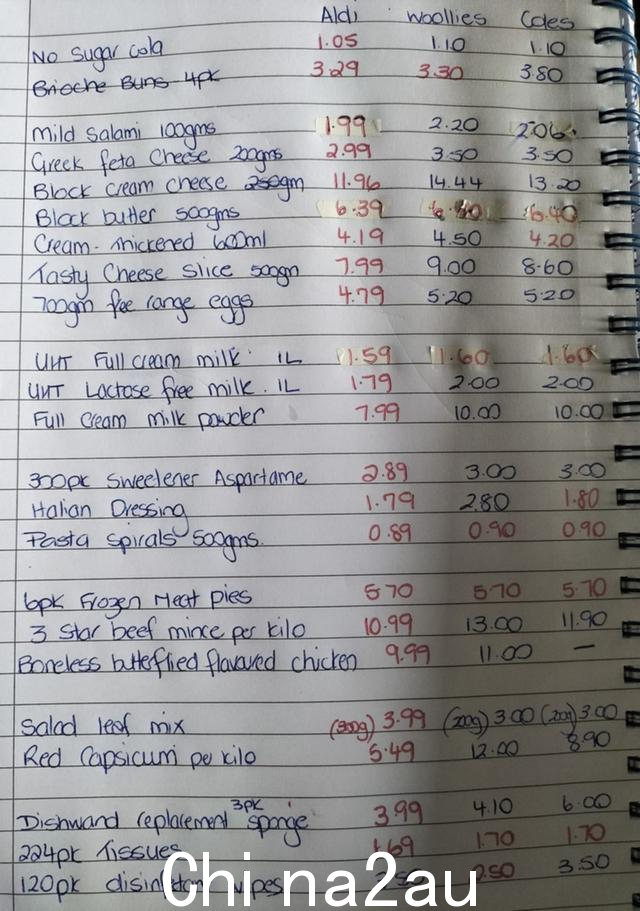 Aldi Woollies Coles
No sugar cola 1.05 1.10 1.10
Brioche Buns 4pk 3.29 3.30 3.80
Mild Salami 100gms 1.99 2.20 2.06
Greek feta Cheese 200gms 2.99 3.50 3.50
Block cream cheese 250gm 11.96 14.44 13.20
Block butter 500gms 6.39 6.40 6.40
Cream - thickened 600ml 4.19 4.50 4.20
Tasty Cheese Slice 500gm 7.99 9.00 8.60
700gm fee range eggs 4.79 5.20 5.20
UHT Full cream milk 1L 1.59 1.60 1.60
UHT Lactose free milk . 1L 1.79 2.00 2.00
Full Cream milk powder 7.99 10.00 10.00
300pk Sweetener Aspartame 2.89 3.00 3.00
Italian Dressing 1.79 2.80 1.80
Pasta Spirals 500gms. 0.89 0.90 0.90
6pk Frozen Meat pies 5.70 5.70 5.70
3 Star beef mince per kilo 10.99 13.00 11.90
Boneless butteflied flavoured chicken 9.99 11.00 —
Salad leaf mix (300g) 3.99 (200g) 3.00 (200g) 3.00
Red Capsicum per kilo 5.49 12.00 8.90
Dishwand replacement 3pk sponge 3.99 4.10 6.00
224pk Tissues 1.69 1.70 1.70
120pk wipes 3.50
Chi na2au